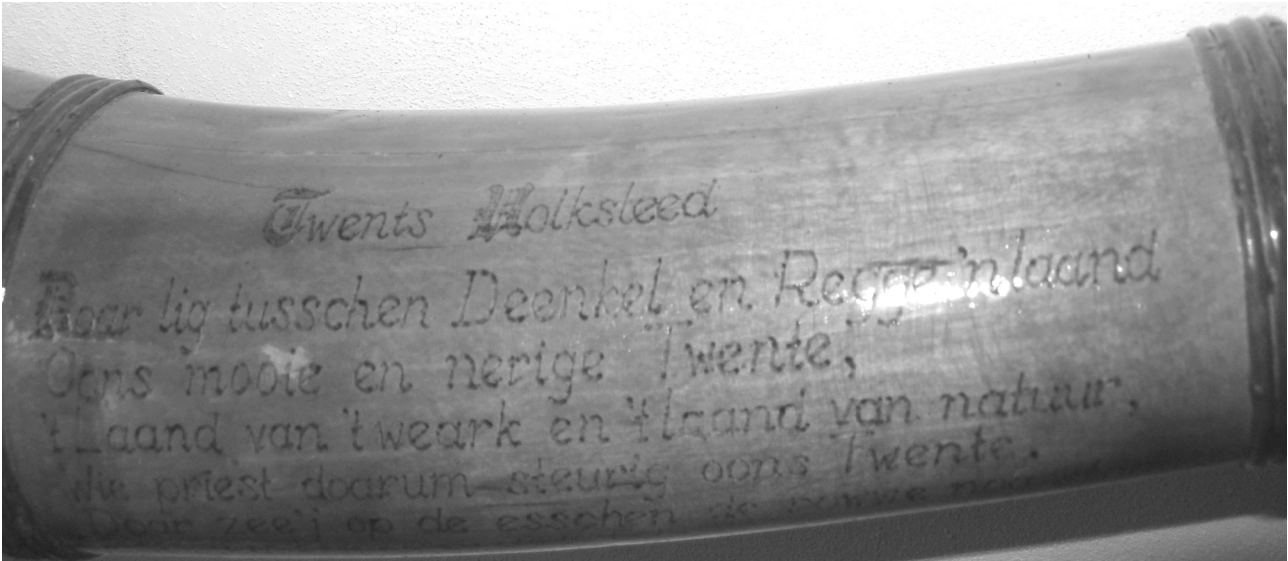 Twents Volksleed
Doar lig tusschen Deenkel en Regge 'n laand
Oons mooie en nerige Twente,
't Laand van 't weark en 't laand van natuur,
Wie priest doarum steurig oons Twente.
Doar zee'j op de esschen de